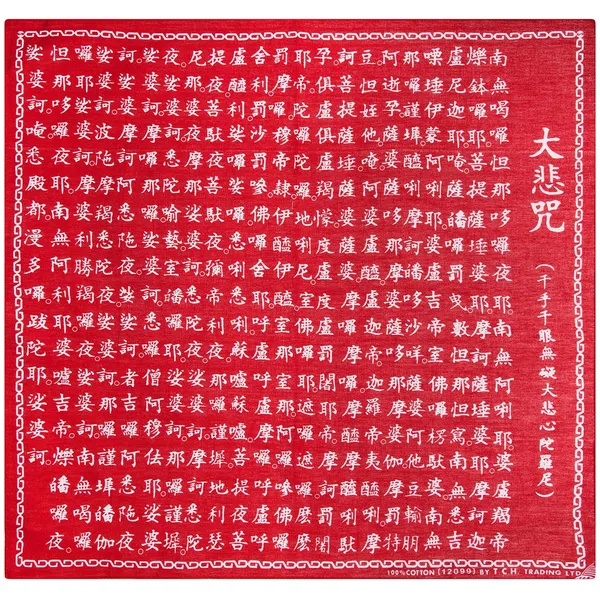 大悲咒
(千手千眼無礙大悲心陀羅尼)
南無喝囉怛那哆囉夜耶。南無阿唎耶。婆盧羯帝
爍鉢囉耶。菩提薩埵婆耶。摩訶薩埵婆耶。摩訶迦
盧尼迦耶。唵。薩皤囉罰曳。數怛那怛寫。南無悉吉
嘌埵伊蒙阿唎耶。婆盧吉帝室佛囉楞馱婆。南無
那囉謹墀。醯利摩訶皤哆沙咩。薩婆阿他豆輸朋。
阿逝孕。薩婆薩哆那摩婆薩哆那摩婆伽。摩罰特
豆。怛姪他。唵阿婆盧醯。盧迦帝。迦羅帝。夷醯唎。摩
訶菩提薩埵。薩婆薩婆。摩囉摩囉。摩醯摩醯唎馱
孕。俱盧俱盧羯懞。度盧度盧罰闍耶帝。摩訶罰闍
耶帝。陀囉陀囉。地唎尼。室佛囉耶。遮囉遮囉。麼麼
罰摩囉。穆帝隸。伊醯伊醯。室那室那。阿囉嘇佛囉
舍利。罰沙罰嘇。佛囉舍耶。呼盧呼盧摩囉。呼盧呼
盧醯利。娑囉娑囉。悉唎悉唎。蘇嚧蘇嚧。菩提夜菩
提夜。菩馱夜菩馱夜。彌帝利夜。那囉謹墀。地利瑟
尼那。婆夜摩那。娑婆訶。悉陀夜。娑婆訶。摩訶悉陀
夜。娑婆訶。悉陀喻藝。室皤囉夜。娑婆訶。那囉謹墀。
娑婆訶。摩囉那囉。娑婆訶。悉囉僧阿穆佉耶。娑婆
訶。娑婆摩訶阿悉陀夜。娑婆訶。者吉囉阿悉陀夜。
娑婆訶。波陀摩羯悉陀夜。娑婆訶。那囉謹墀皤伽
囉耶。娑婆訶。摩婆利勝羯囉夜。娑婆訶。南無喝囉
怛那哆囉夜耶。南無阿利耶。婆嚧吉帝。爍皤囉夜。
娑婆訶。唵。悉殿都。漫多囉。跋陀耶。娑婆訶。
100%COTTON (12099) BY T.C.H. TRADING LTD